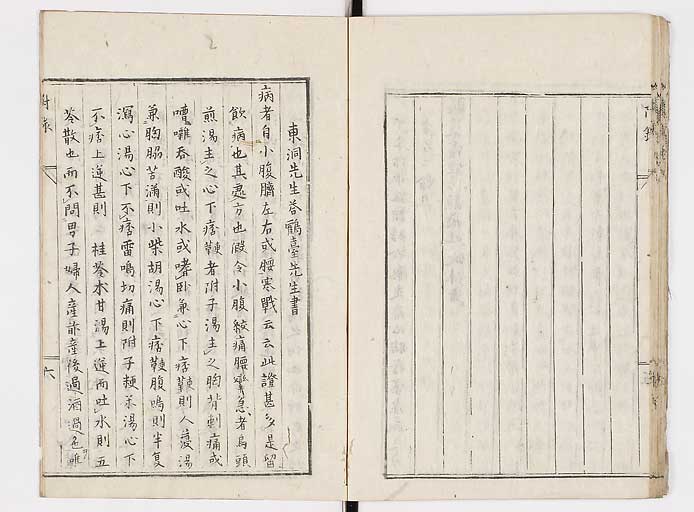 東洞先生答鶴臺先生書
病者自小腹臍左右或腰寒戰云云此證甚多是留
飲病也其處方也假令小腹絞痛腰攣急者烏頭
煎湯主之心下痞鞕者附子湯主之胸背刺痛或
嘈囃吞酸或吐水或嗜卧兼心下痞鞕則人參湯
兼胸脇苦滿則小柴胡湯心下痞鞕腹鳴則半夏
瀉心湯心下不痞雷鳴切痛則附子粳米湯心下
不痞上逆甚則 桂苓朮甘湯上逆而吐水則五
苓散也而不問男子婦人產前產後過酒過色雖
附錄
六